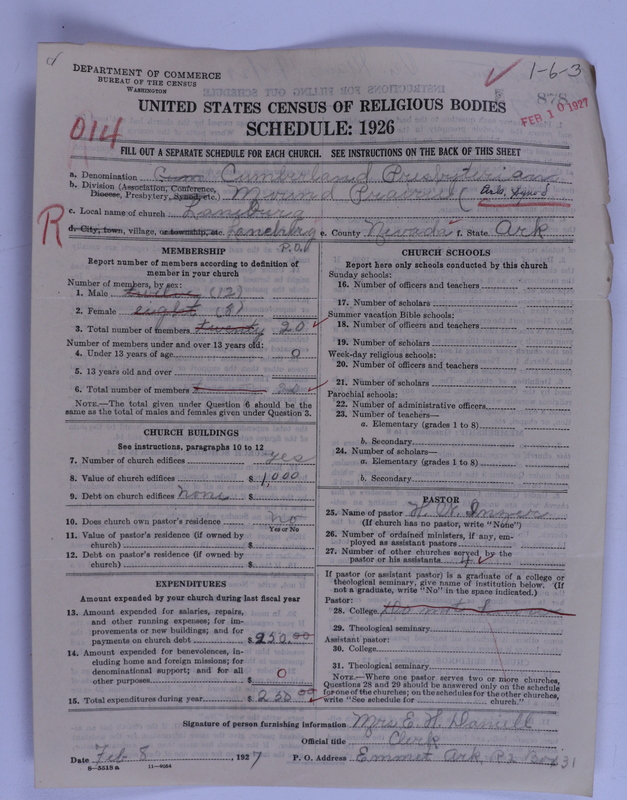 1-6-3
DEPARTMENT OF COMMERCE
BUREAU OF THE CENSUS
WASHINGTON
878
FEB 10 1927
UNITED STATES CENSUS OF RELIGIOUS BODIES
SCHEDULE: 1926
014
FILL OUT A SEPARATE SCHEDULE FOR EACH CHURCH. SEE INSTRUCTIONS ON THE BACK OF THIS SHEET
a. Denomination Cumberland Presbyterian
b. Division (Association, Conference, Diocese, Presbytery, Synod, etc.) Mound Prairie (Ark. Synod
c. Local name of church Laneburg
R
d. City, town, village, or township, etc. Laneburg e. County Nevada f. State Ark
P.O.
MEMBERSHIP
Report number of members according to definition of
member in your church
Number of members, by sex:
1. Male twelve (12)
2. Female eight (8)
3. Total number of members twenty 20
Number of members under and over 13 years old:
4. Under 13 years of age 0
5. 13 years old and over
6. Total number of members 20
NOTE.—The total given under Question 6 should be the
same as the total of males and females given under Question 3.
CHURCH BUILDINGS
See instructions, paragraphs 10 to 12
7. Number of church edifices yes
8. Value of church edifices $ 1,000
9. Debt on church edifices None $
10. Does church own pastor's residence No
Yes or No
11. Value of pastor's residence (if owned by
church) $
12. Debt on pastor's residence (if owned by
church) $
EXPENDITURES
Amount expended by your church during last fiscal year
13. Amount expended for salaries, repairs,
and other running expenses; for im-
provements or new buildings; and for
payments on church debt $ 250.00
14. Amount expended for benevolences, in-
cluding home and foreign missions; for
denominational support; and for all
other purposes $ 0
15. Total expenditures during year $ 250.00
CHURCH SCHOOLS
Report here only schools conducted by this church
Sunday schools:
16. Number of officers and teachers
17. Number of scholars
Summer vacation Bible schools:
18. Number of officers and teachers
19. Number of scholars
Week-day religious schools:
20. Number of officers and teachers
21. Number of scholars
Parochial schools:
22. Number of administrative officers
23. Number of teachers—
a. Elementary (grades 1 to 8)
b. Secondary
24. Number of scholars—
a. Elementary (grades 1 to 8)
b. Secondary
PASTOR
25. Name of pastor H. N.
(If church has no pastor, write "None")
26. Number of ordained ministers, if any, em-
ployed as assistant pastors
27. Number of other churches served by the
pastor or his assistants 4
If pastor (or assistant pastor) is a graduate of a college or
theological seminary, give name of institution below. (If
not a graduate, write "No" in the space indicated.)
Pastor:
28. College
29. Theological seminary
Assistant pastor:
30. College
31. Theological seminary
NOTE.—Where one pastor serves two or more churches,
Questions 28 and 29 should be answered only on the schedule
for one of the churches; on the schedules for the other churches,
write "See schedule for church."
Signature of person furnishing information Mrs. E. H. Daniell
Official title Clerk
Date Feb 8, 1927 P. O. Address Emmet Ark, R2 Box 31
8-5518a 11-9064